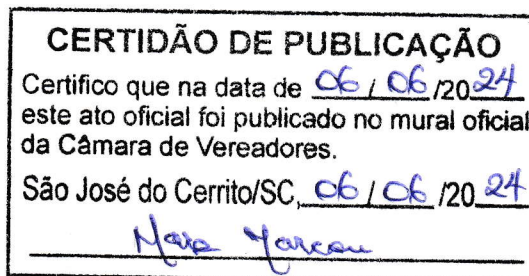 CERTIDÃO DE PUBLICAÇÃO
Certifico que na data de 06 / 06 /2024
este ato oficial foi publicado no mural oficial
da Câmara de Vereadores.
São José do Cerrito/SC, 06 / 06 /20 24